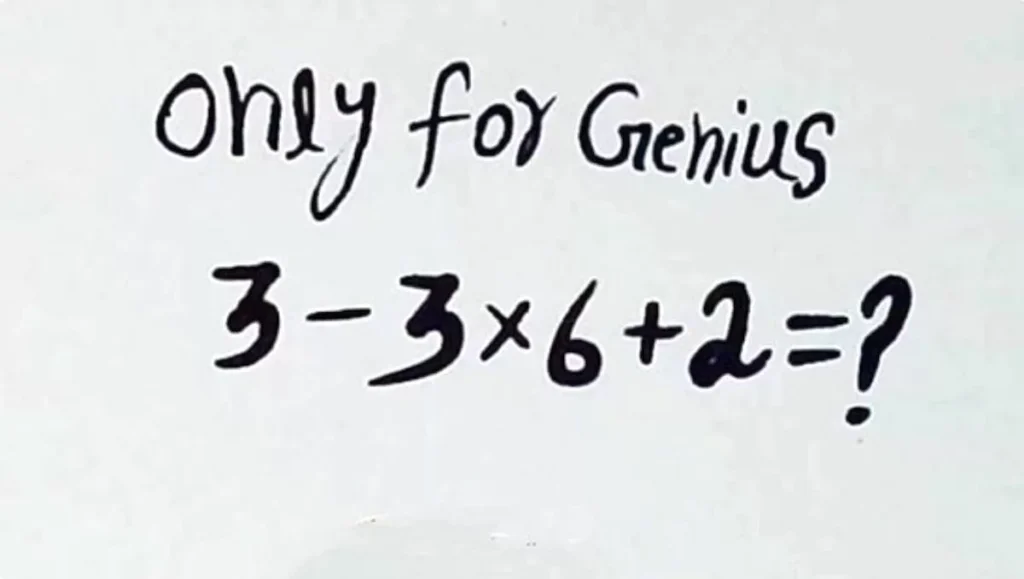 only for Genius
3-3×6+2=?